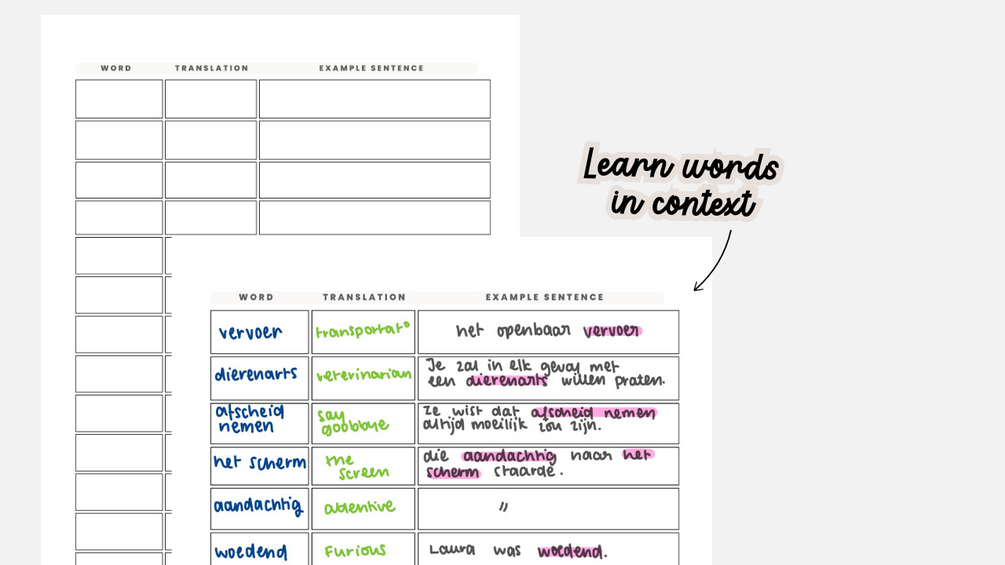 WORD TRANSLATION EXAMPLE SENTENCE
Learn words
in context
WORD TRANSLATION EXAMPLE SENTENCE
vervoer transportatº het openbaar vervoer
dierenarts veterinarian Je zal in elk geval met
een dierenarts willen praten.
afscheid
nemen say
goobbye ze wist dat afscheid nemen
altijd moeilijk zou zijn.
het scherm the
screen die aandachtig naar het
scherm staarde.
aandachtig attentive "
woedend Furious Laura was woedend.